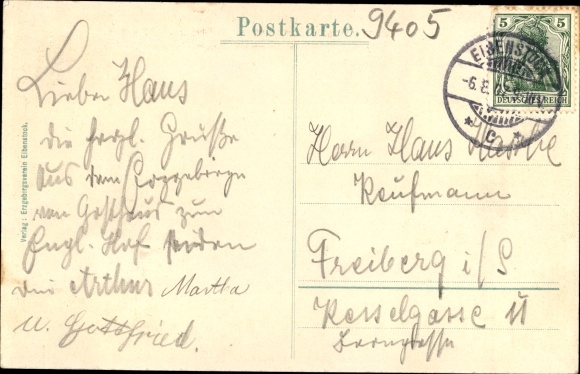 Postkarte.
9405
5 5
DEUTSCHES REICH
EIBENSTOCK
-6.8.
* c *
Lieber Hans
die herzl. Grüße
aus dem Erzgebirge
von Gasthaus zum
Engl. Hof senden
dir Arthur Martha
u. Gottfried.
Herrn Hans
Kaufmann
Freiberg i/S
Kesselgasse 11
Verlag: Erzgebirgsverein Eibenstock.